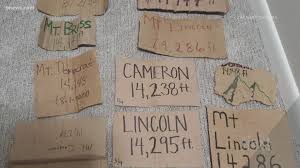 9news.com
Mt. Bross
Mt. Lincoln
14,286 ft.
Mt. Democrat
14,148
CAMERON
14,238 ft.
LINCOLN
14,295 ft.
Mt
Lincoln
14,286